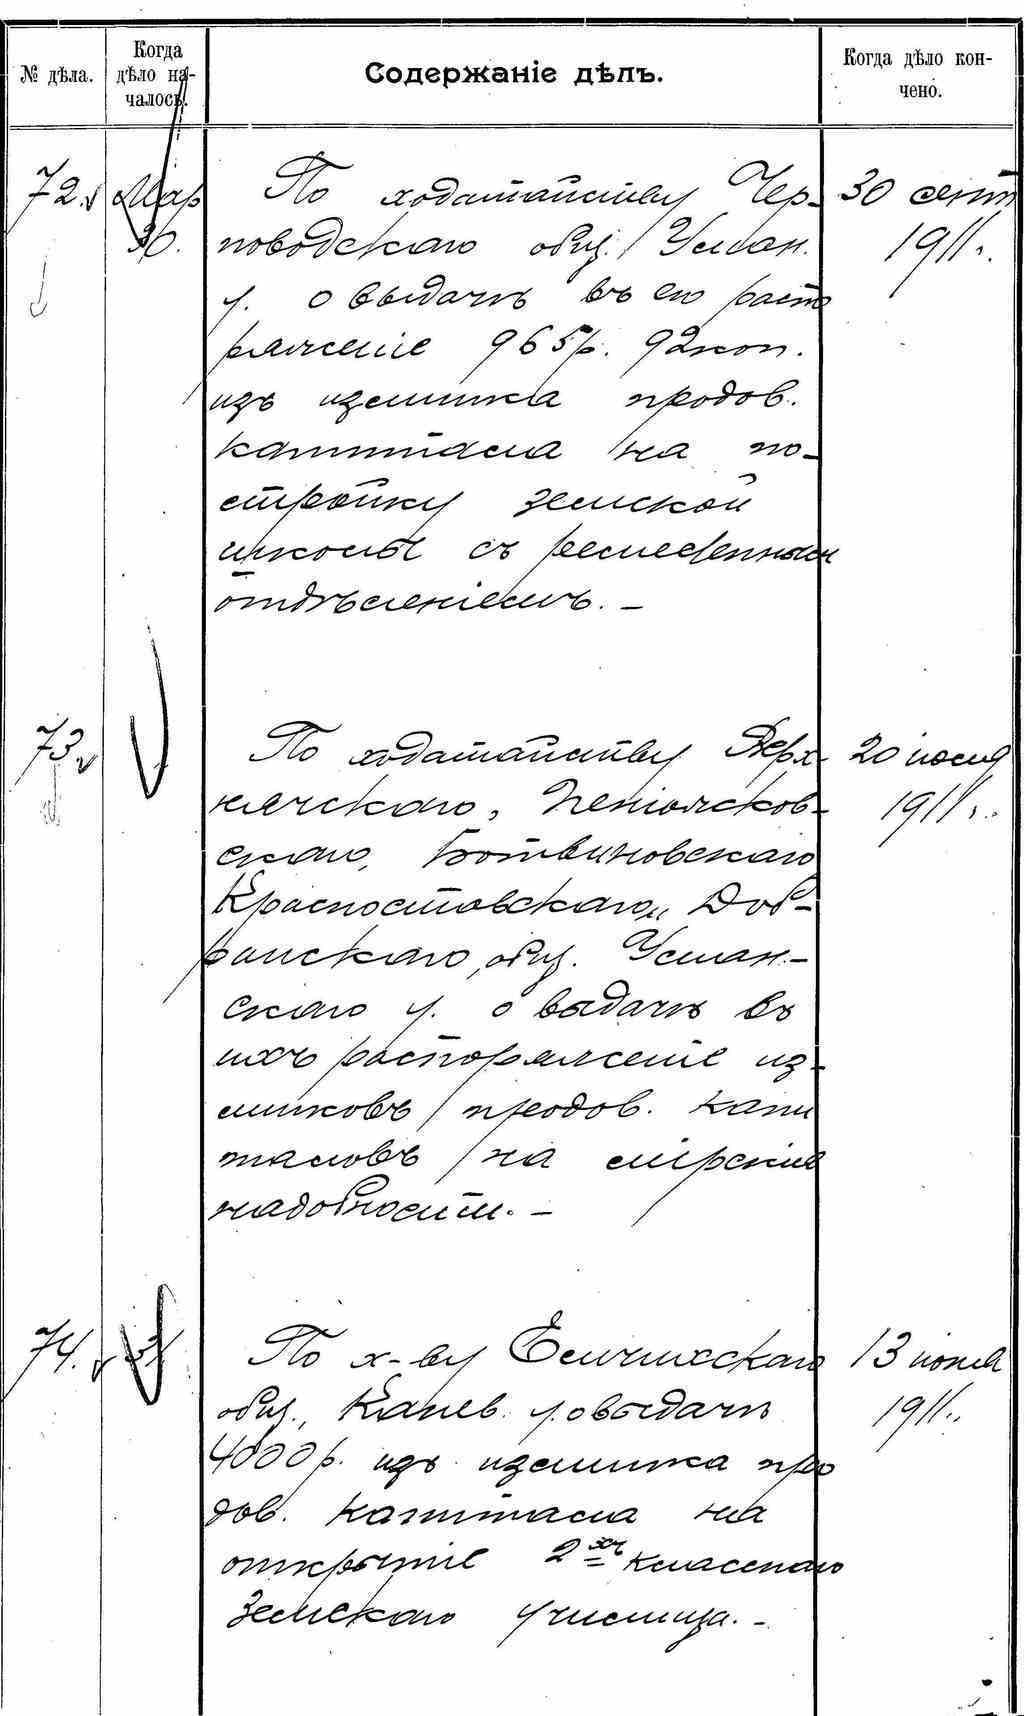 № дѣла.
Когда
дѣло на-
чалось.
Содержаніе дѣлъ.
Когда дѣло кон-
чено.
72.
Мар
30.
По ходатайству Чер-
поводскаго общ. Уман.
у. о выдачѣ въ его распо
ряженіе 965 р. 92 коп.
изъ излишка продов.
капитала на по-
стройку земской
школы съ ремеслен­нымъ
отдѣленіемъ. –
30 сент
1911 г.
73
По ходатайству Верх-
нячскаго,
скаго, Ботвиновскаго
Красноставскаго и Доб-
скаго общ. Уман-
скаго у. о выдачѣ въ
ихъ распоряженіе из-
лишковъ продов. капи
таловъ на мірскія
надобности. –
20 іюля
1911 г.
74.
31
По х-ву Беличихскаго
общ., Канев. у. о выдачѣ
4000 р. изъ излишка про
дов. капитала на
открытіе 2хъ класснаго
земскаго училища. –
13
1911 г.